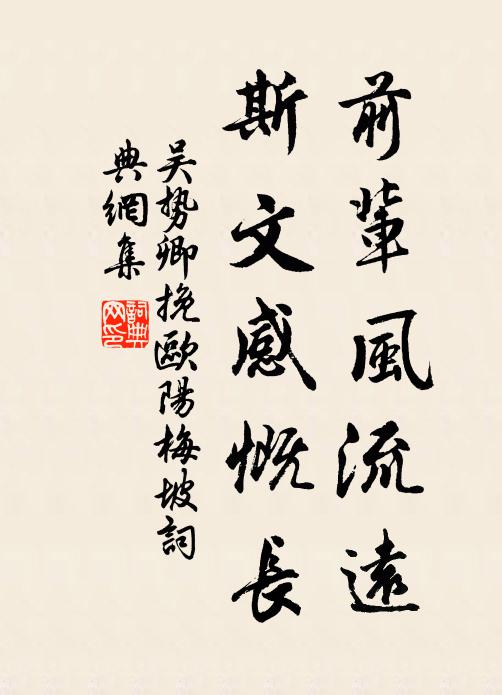 前輩風流遠
斯文感慨長
吴势卿挽歐陽梅坡詞
典網集
詞典
网印